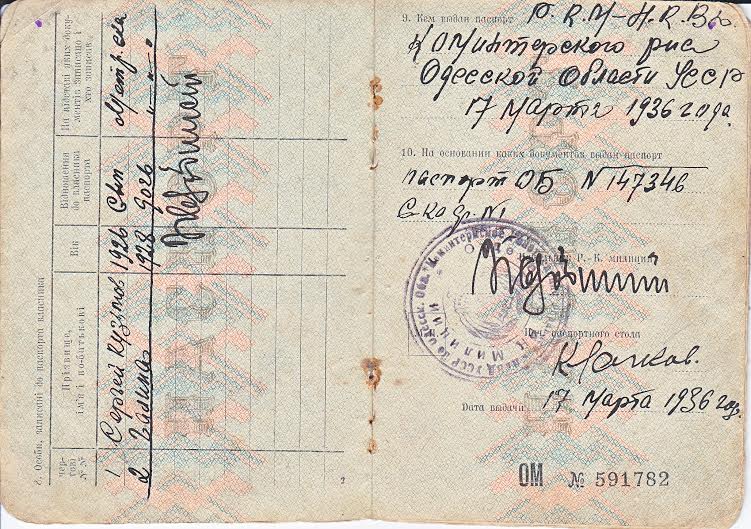 Особи, записані до паспорта власника
чер-
гові
№№
Прізвище,
ім'я і по-батькові
Вік
Відношення
до власника
паспорта
На підставі яких доку-
ментів записано і
хто записав
1 Сергей 1926 Сын Метр.
2 Галина 1928 Дочь
2
9. Кем выдан паспорт Р.К.М-Н.К.В.Д.
Коминтерского р-на
Одесской Области УССР
17 Марта 1936 года
10. На основании каких документов выдан паспорт
паспорт ОБ N 147346
Р.-К. милиции
паспортного стола
Дата выдачи 17 Марта 1936 год
ОМ № 591782